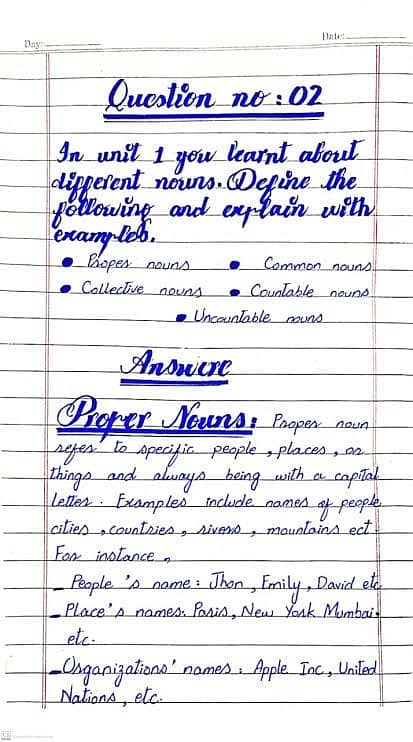 Day:
Date:
Question no : 02
In unit 1 you learnt about
different nouns. Define the
following and explain with
examples.
• Proper nouns • Common nouns
• Collective nouns • Countable nouns
• Uncountable nouns
Answere
Proper Nouns: Proper noun
refer to specific people, places, or
things and always being with a capital
letter. Examples include names of people
cities, countries, rivers, mountains ect
For instance,
_ People's name: Jhon, Emily, David etc
_ Place's names: Paris, New York Mumbai,
etc.
_ Organizations' names: Apple Inc, United
Nations, etc.